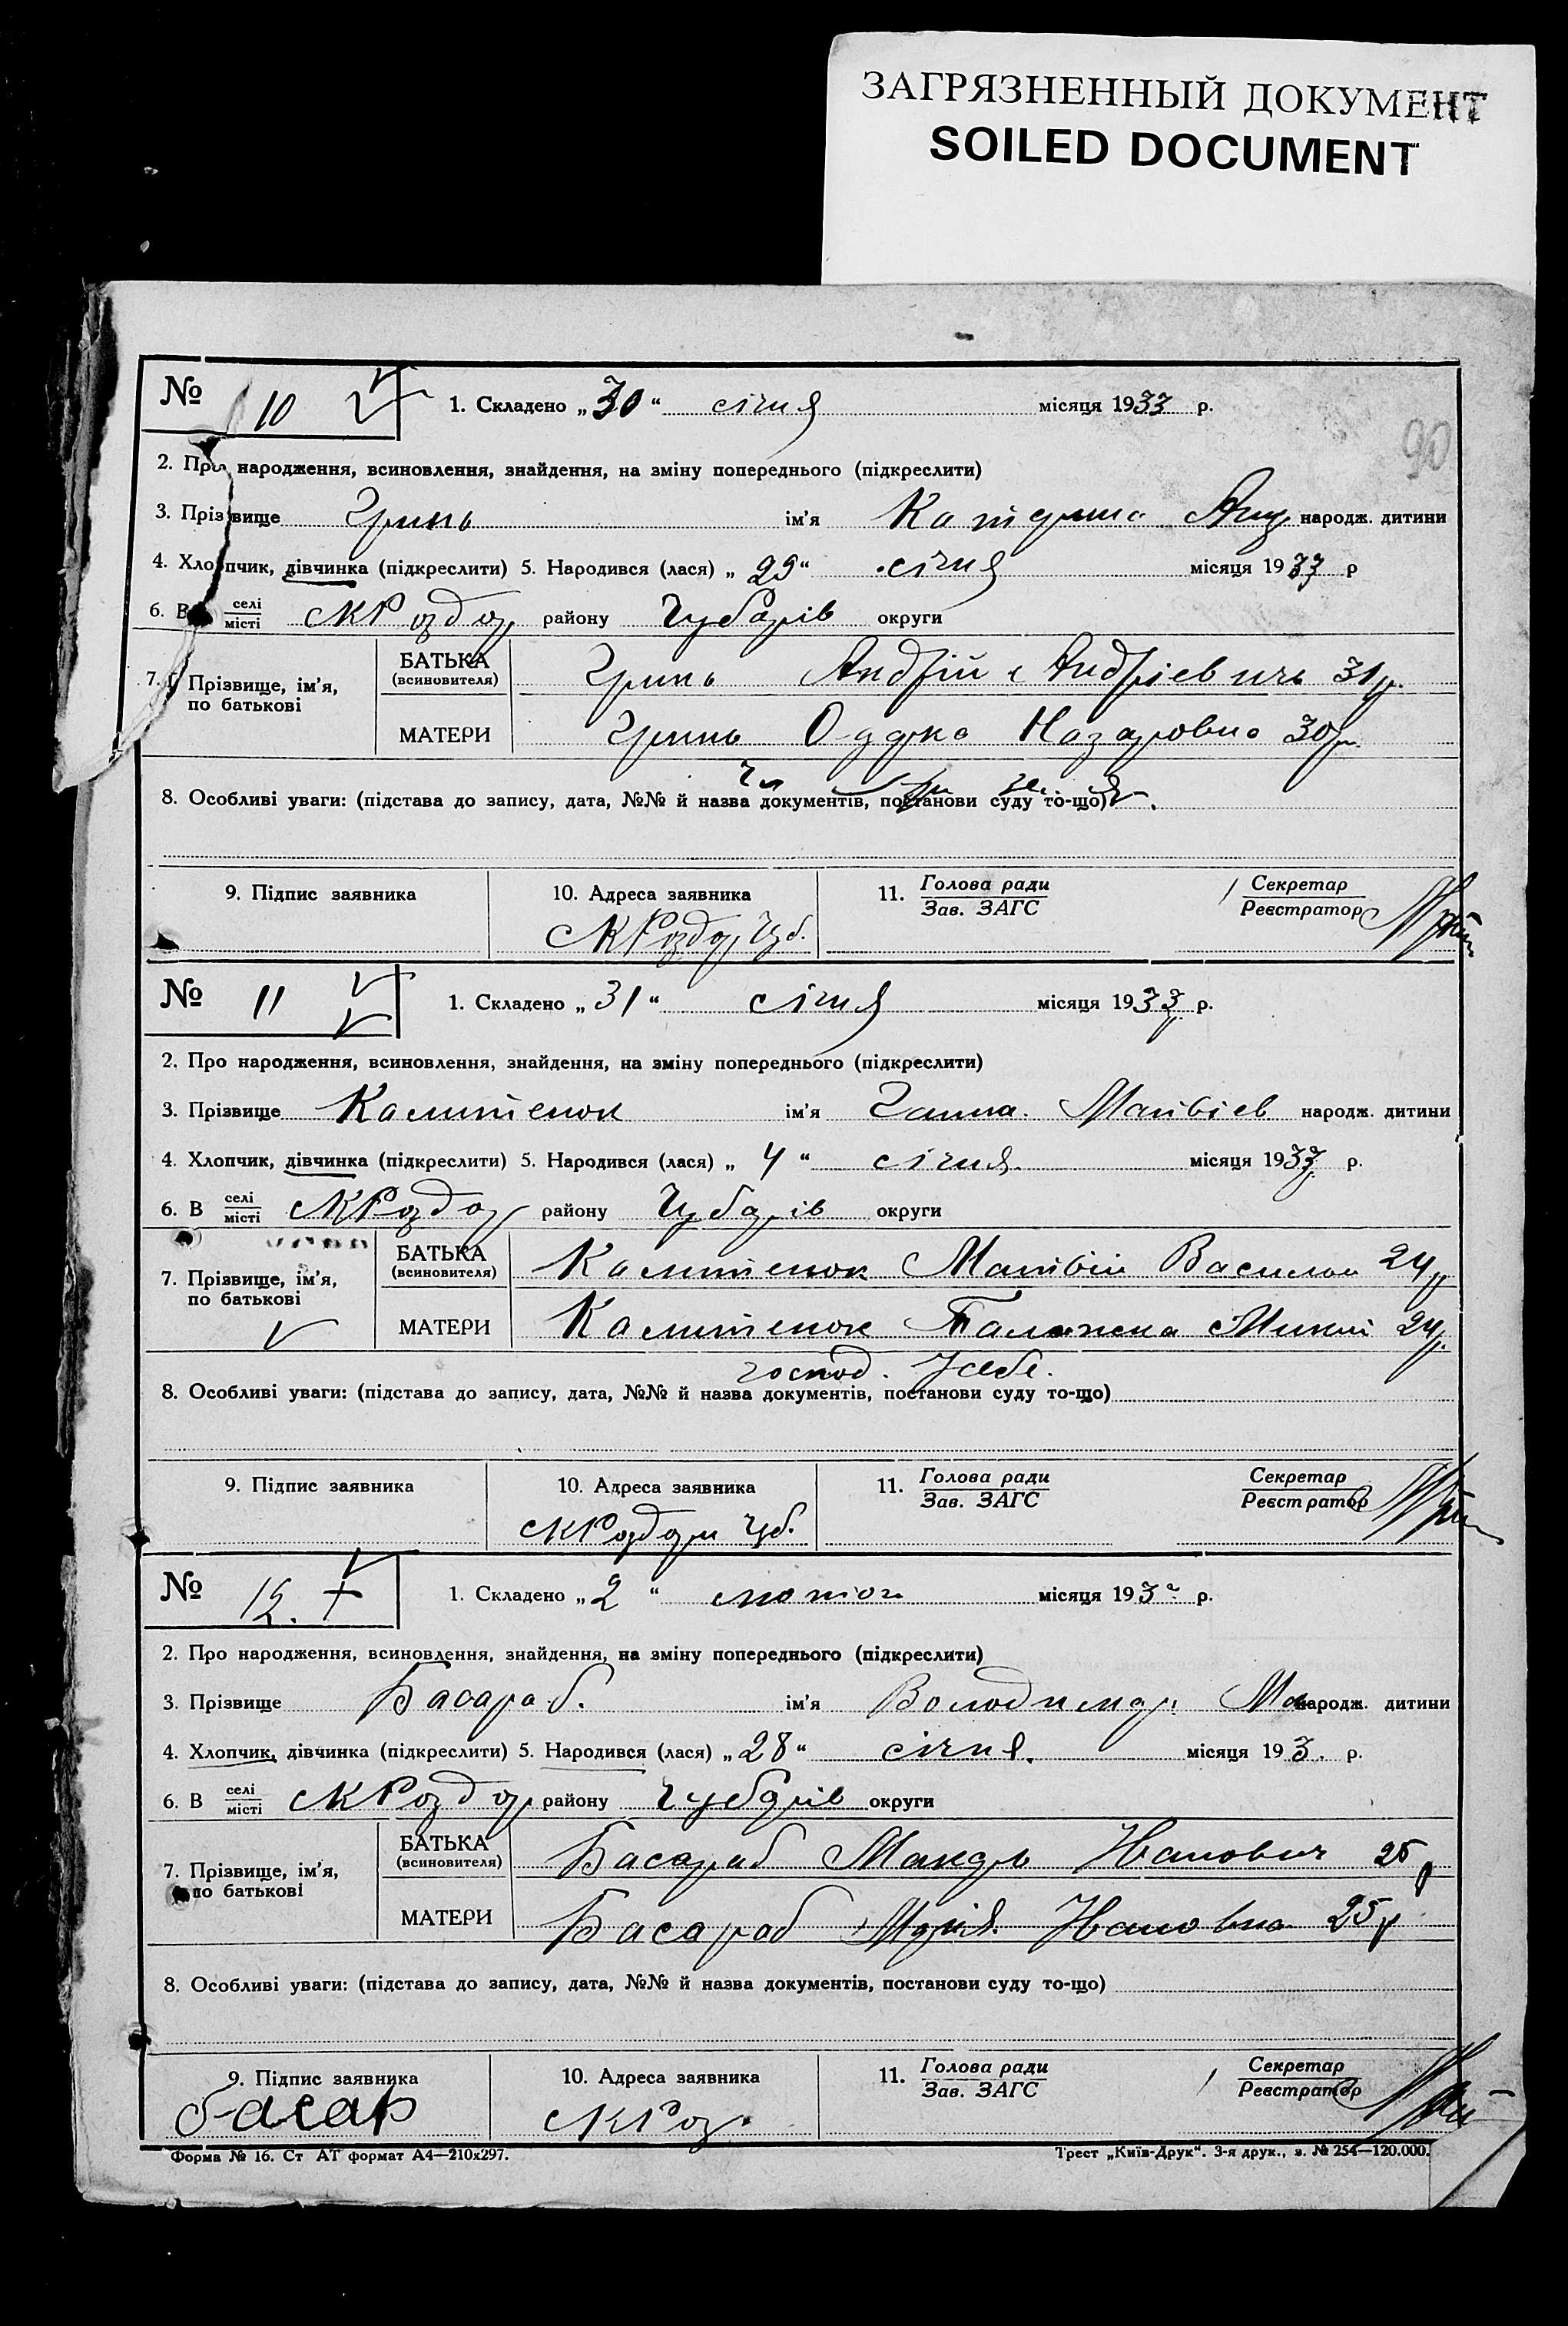 ЗАГРЯЗНЕННЫЙ ДОКУМЕНТ
SOILED DOCUMENT
90
№ 10 1. Складено „30“ січня місяця 1933 р.
2. Про народження, всиновлення, знайдення, на зміну попереднього (підкреслити)
3. Прізвище Гринь ім'я Катерина Анд народж. дитини
4. Хлопчик, дівчинка (підкреслити) 5. Народився (лася) „29“ січня місяця 1933 р
6. В селі/місті району Чубарів округи
7. Прізвище, ім'я, по батькові
БАТЬКА (всиновителя) Гринь Андрій Андрієвичь 31р.
МАТЕРИ Гринь Одарка Назаровна 30р.
8. Особливі уваги: (підстава до запису, дата, №№ й назва документів, постанови суду то-що)
9. Підпис заявника 10. Адреса заявника 11. Голова ради/Зав. ЗАГС Секретар/Реєстратор
№ 11 1. Складено „31“ січня місяця 1933 р.
2. Про народження, всиновлення, знайдення, на зміну попереднього (підкреслити)
3. Прізвище ім'я Ганна Матвієв народж. дитини
4. Хлопчик, дівчинка (підкреслити) 5. Народився (лася) „4“ січня місяця 1933 р.
6. В селі/місті району Чубарів округи
7. Прізвище, ім'я, по батькові
БАТЬКА (всиновителя) Матвій Василов 24р
МАТЕРИ Палажка Микит 24р.
господ.
8. Особливі уваги: (підстава до запису, дата, №№ й назва документів, постанови суду то-що)
9. Підпис заявника 10. Адреса заявника 11. Голова ради/Зав. ЗАГС Секретар/Реєстратор
№ 12. 1. Складено „2“ лютого місяця 193 р.
2. Про народження, всиновлення, знайдення, на зміну попереднього (підкреслити)
3. Прізвище Басараб. ім'я Володимир Мак народж. дитини
4. Хлопчик, дівчинка (підкреслити) 5. Народився (лася) „28“ січня. місяця 193. р.
6. В селі/місті району Чубарів округи
7. Прізвище, ім'я, по батькові
БАТЬКА (всиновителя) Басараб Макар Иванович 25
МАТЕРИ Басараб Марія Ивановна 25р
8. Особливі уваги: (підстава до запису, дата, №№ й назва документів, постанови суду то-що)
9. Підпис заявника 10. Адреса заявника 11. Голова ради/Зав. ЗАГС Секретар/Реєстратор
басар
Форма № 16. Ст АТ формат А4—210х297. Трест „Київ-Друк“. 3-я друк., з. № 254—120.000.